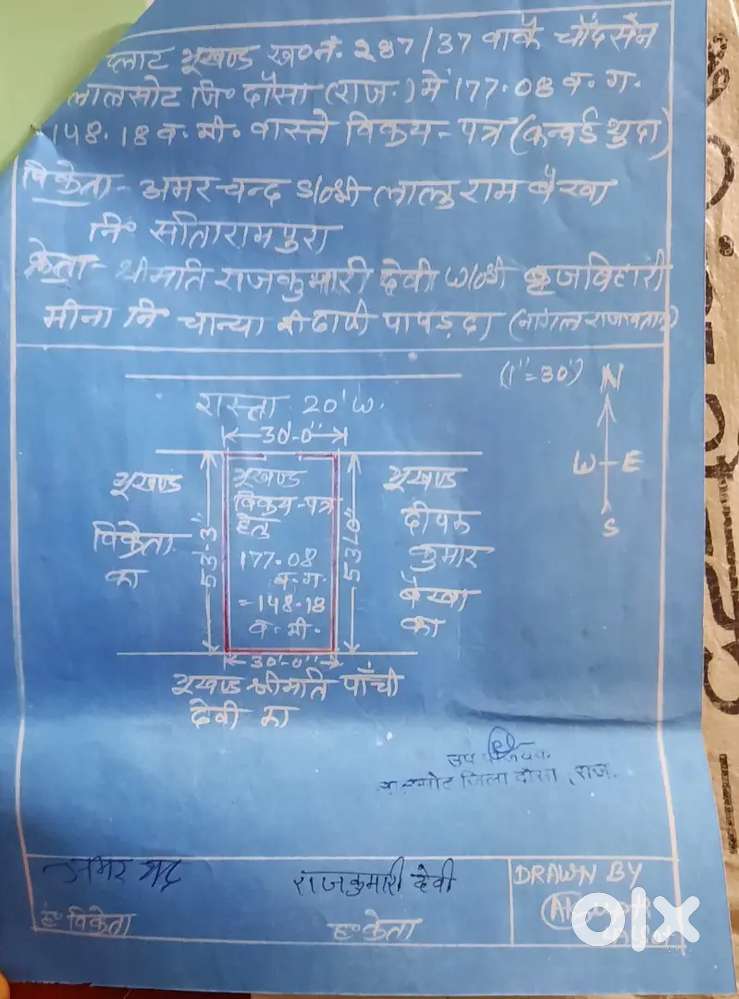 प्लाट भूखण्ड ख०नं. 287/37 वाकै चाँदसेन
लालसोट जि० दौसा (राज.) में 177.08 व. ग.
=148.18 व. मी. वास्ते विक्रय-पत्र (कन्वर्ड शुदा)
विक्रेता - अमर चन्द S/o श्री लालुराम बैरवा
नि० सीतारामपुरा
क्रेता - श्रीमति राजकुमारी देवी W/o श्री बृजबिहारी
मीना नि चान्या की ढाणी पापड़दा
(1"=30') N
रास्ता 20' W.
30'-0"
भूखण्ड
विक्रेता
का
53'-3"
भूखण्ड
विक्रय-पत्र
हेतु
177.08
व. ग.
=148.18
व. मी.
53'-0"
भूखण्ड
दीपक
कुमार
बैरवा
का
W E
S
30'-0"
भूखण्ड श्रीमति पाँची
देवी का
उप
जिला दौसा, राज.
अमर चन्द
राजकुमारी देवी
ह० विक्रेता
ह० क्रेता
DRAWN BY
olx